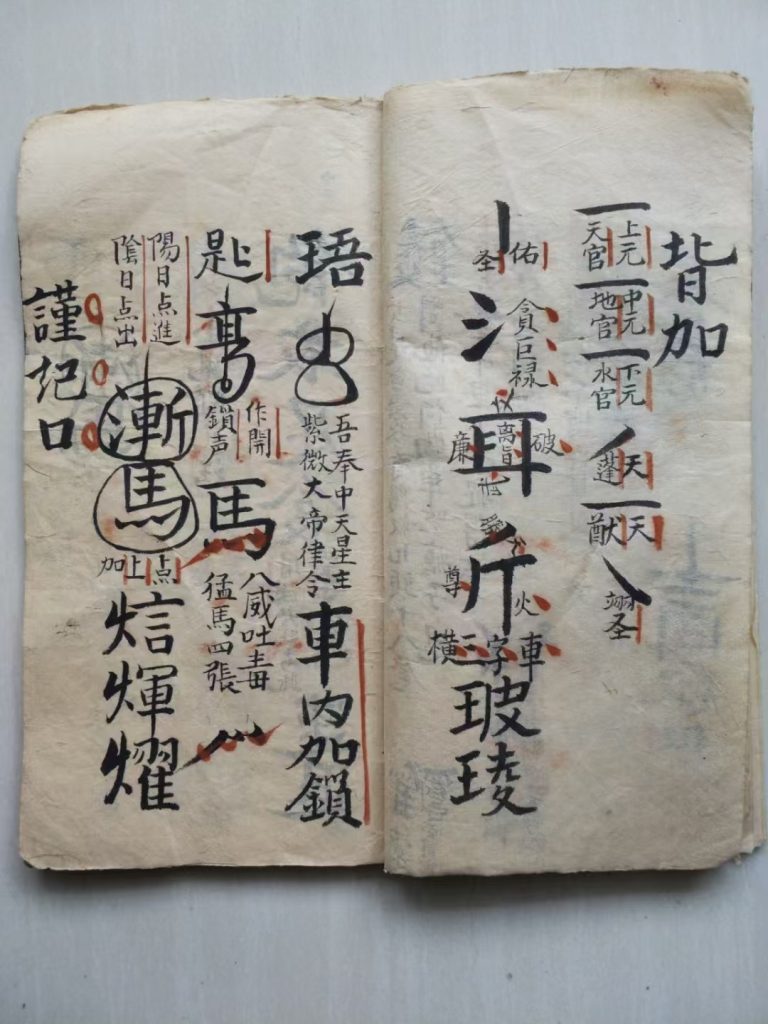 加
上元
天官
中元
地官
下元
水官
天蓬
天猷
翊圣
佑圣
氵
貪巨禄
破
廉
斤
火
尊
車字三横
玻
㻏
珸
吾奉中天星主
紫微大帝律令
車内加鎖
匙
作開
鎖声
馬
八威吐毒
猛馬四張
陽日点進
陰日点出
漸
馬
点上加
㷓
煇
燿
謹記口